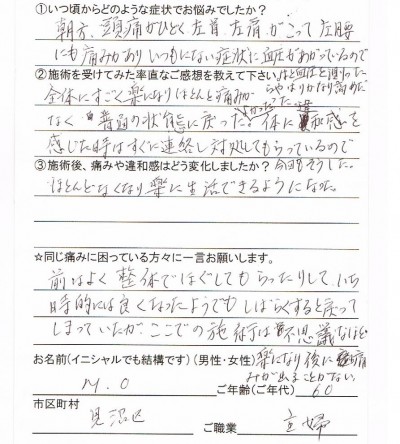 ①いつ頃からどのような症状でお悩みでしたか?
朝方、頭痛がひどく左首、左肩がこって左腰
にも痛みがありいつもにない症状に血圧があがっているので
②施術を受けてみた率直なご感想を教えて下さい。
はと血圧を測ったら
やはりかなり高めだった。
全体にすごく楽になりほとんど痛みが
なく普通の状態に戻った。体に違和感を
感じた時はすぐに連絡し対処してもらっているので
③施術後、痛みや違和感はどう変化しましたか?
今回もそうした。
ほとんどなくなり楽に生活できるようになった。
☆同じ痛みに困っている方々に一言お願いします。
前はよく整体でほぐしてもらったりして、いち
時的には良くなったようでもしばらくすると戻って
しまっていたが、ここでの施術は不思議なほど
楽になり後に痛
みが出ることがない
お名前(イニシャルでも結構です)(男性・女性)
M.O
ご年齢(ご年代) 60
市区町村
見沼区
ご職業 主婦